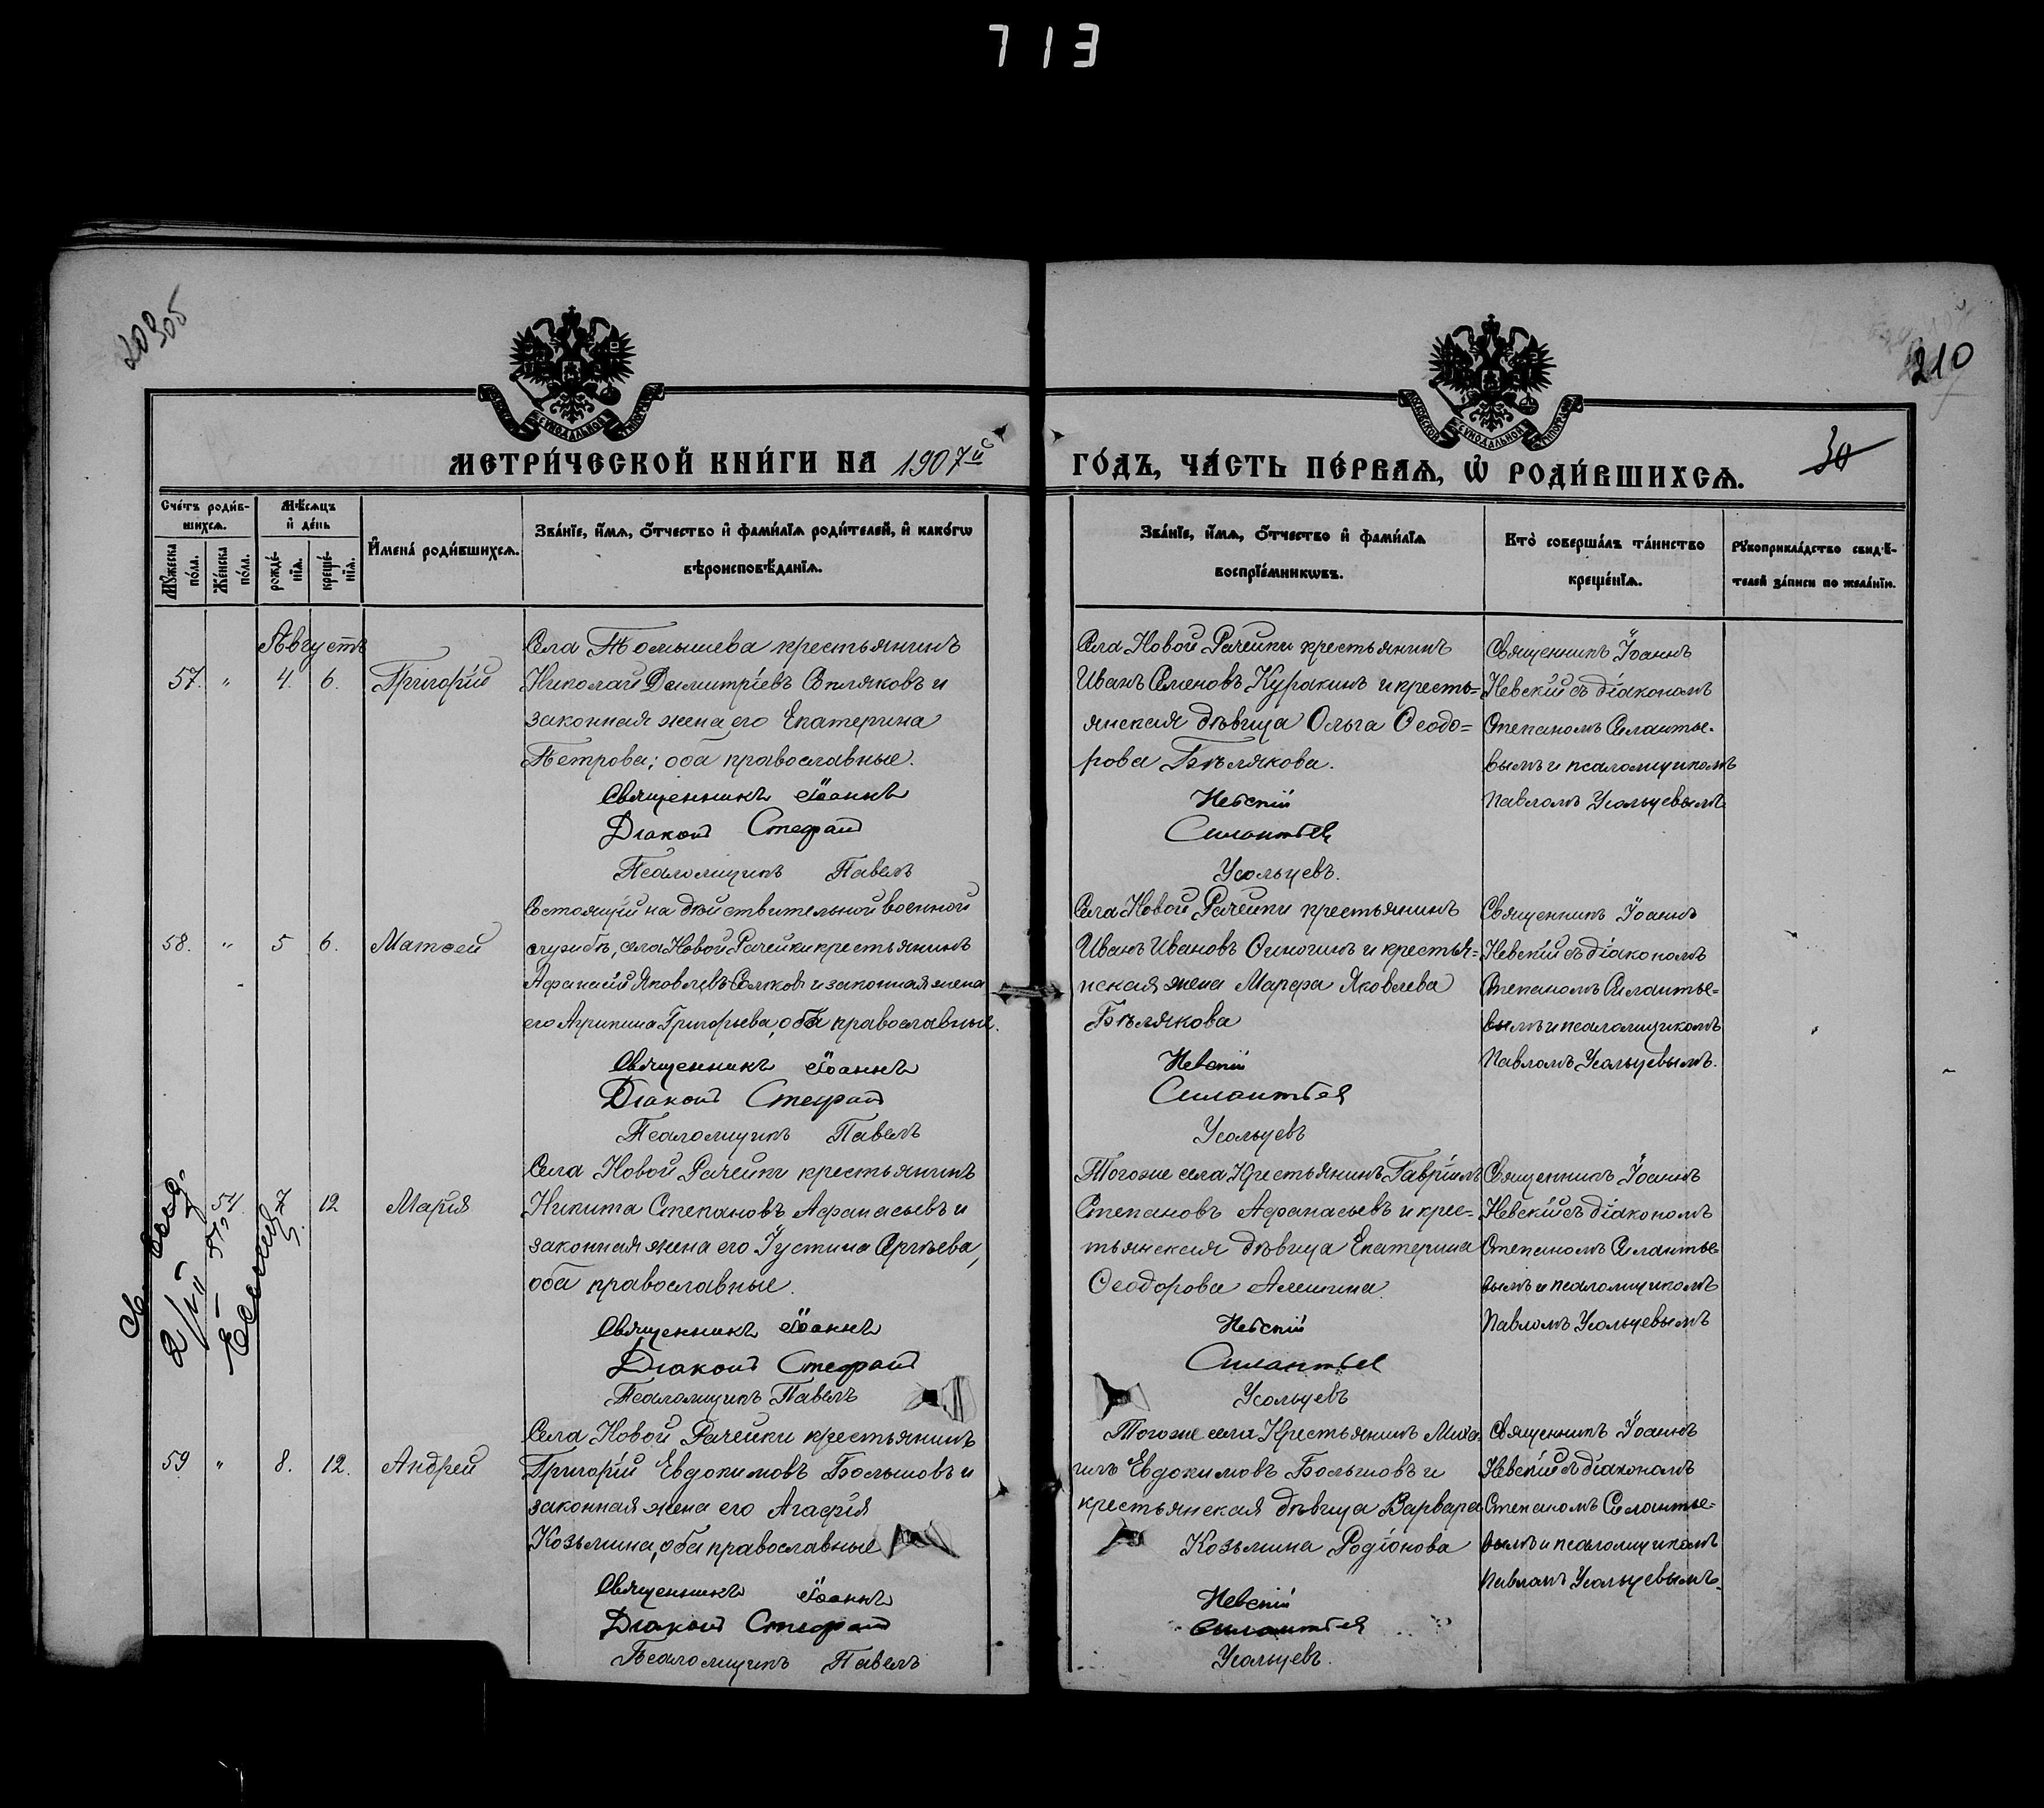 713
20305
210
МЕТРИ́ЧЕСКОЙ КНИ́ГИ НА 1907й
ГО́ДЪ, ЧА́СТЬ ПЕ́РВАѦ, Ѡ҆ РОДИ́ВШИХСѦ.
30
Сче́тъ роди́в-
шихсѧ.
Мѣ́сѧцъ
и҆ де́нь
Мꙋ́жеска по́ла.
Же́нска по́ла.
рожде́-
нїѧ.
креще́-
нїѧ.
И҆мена̀ роди́вшихсѧ.
Зва́нїе, и҆́мѧ, ѻ҆́тчество и҆ фами́лїѧ роди́телей, и҆ како́гѡ
вѣроисповѣ́данїѧ.
Зва́нїе, и҆́мѧ, ѻ҆́тчество и҆ фами́лїѧ
воспрїе́мникѡвъ.
Кто̀ соверша́лъ та́инство
креще́нїѧ.
Рꙋкоприкла́дство свидѣ́-
телей за́писи по жела́нїю.
Августъ
57. " 4. 6. Григорій
Села Томышева крестьянинъ
Николай Димитріевъ и
законная жена его Екатерина
Петрова; оба православные.
Священникъ Іоаннъ
Діаконъ Стефанъ
Псаломщикъ Павелъ
Села Новой Рачейки крестьянинъ
Иванъ Семеновъ Куракинъ и кресть=
янская дѣвица Ольга Ѳеодо=
рова Бѣлякова.
Невскій
Силантьев
Усольцевъ.
Священникъ Іоаннъ
Невскій съ діакономъ
Степаномъ Силантье-
вымъ и псаломщикомъ
Павломъ Усольцевымъ
58. " 5 6. Матѳей
Состоящій на дѣйствительной военной
службѣ, села Новой Рачейки крестьянинъ
Афанасій Яковлевъ и законная жена
его Агрипина Григорьева, оба православные.
Священникъ Іоаннъ
Діаконъ Стефанъ
Псаломщикъ Павелъ
Села Новой Рачейки крестьянинъ
Иванъ Ивановъ и крестья=
нская жена Марфа Яковлева
Бѣлякова
Невскій
Силантьев
Усольцевъ
Священникъ Іоаннъ
Невскій съ діакономъ
Степаномъ Силантье=
вымъ и псаломщикомъ
Павломъ Усольцевымъ.
54. 7 12 Марія
Села Новой Рачейки крестьянинъ
Никита Степановъ Афанасьевъ и
законная жена его Іустина Сергѣева,
оба православные.
Священникъ Іоаннъ
Діаконъ Стефанъ
Псаломщикъ Павелъ
Тогоже села Крестьянинъ Гавріилъ
Степановъ Афанасьевъ и крес=
тьянская дѣвица Екатерина
Ѳеодорова Алешина.
Невскій
Силантьев
Усольцевъ
Священникъ Іоаннъ
Невскій съ діакономъ
Степаномъ Силантье
вымъ и псаломщикомъ
Павломъ Усольцевымъ
59 " 8. 12. Андрей
Села Новой Рачейки крестьянинъ
Григорій Евдокимовъ Большовъ и
законная жена его Агафія
Козьмина, оба православные
Священникъ Іоаннъ
Діаконъ Стефанъ
Псаломщикъ Павелъ
Тогоже села Крестьянинъ Миха-
илъ Евдокимовъ Большовъ и
крестьянская дѣвица Варвара
Козьмина Родіонова
Невскій
Силантьев
Усольцевъ.
Священникъ Іоаннъ
Невскій съ діакономъ
Степаномъ Силантье=
вымъ и псаломщикомъ
Павломъ Усольцевымъ.